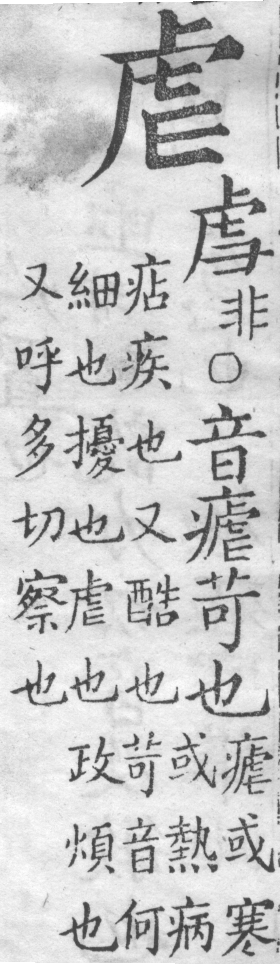 虐
非○音瘧苛也瘧或寒
或熱病
痁疾也又酷也苛音何
細也擾也虐也政煩也
又呼多切察也